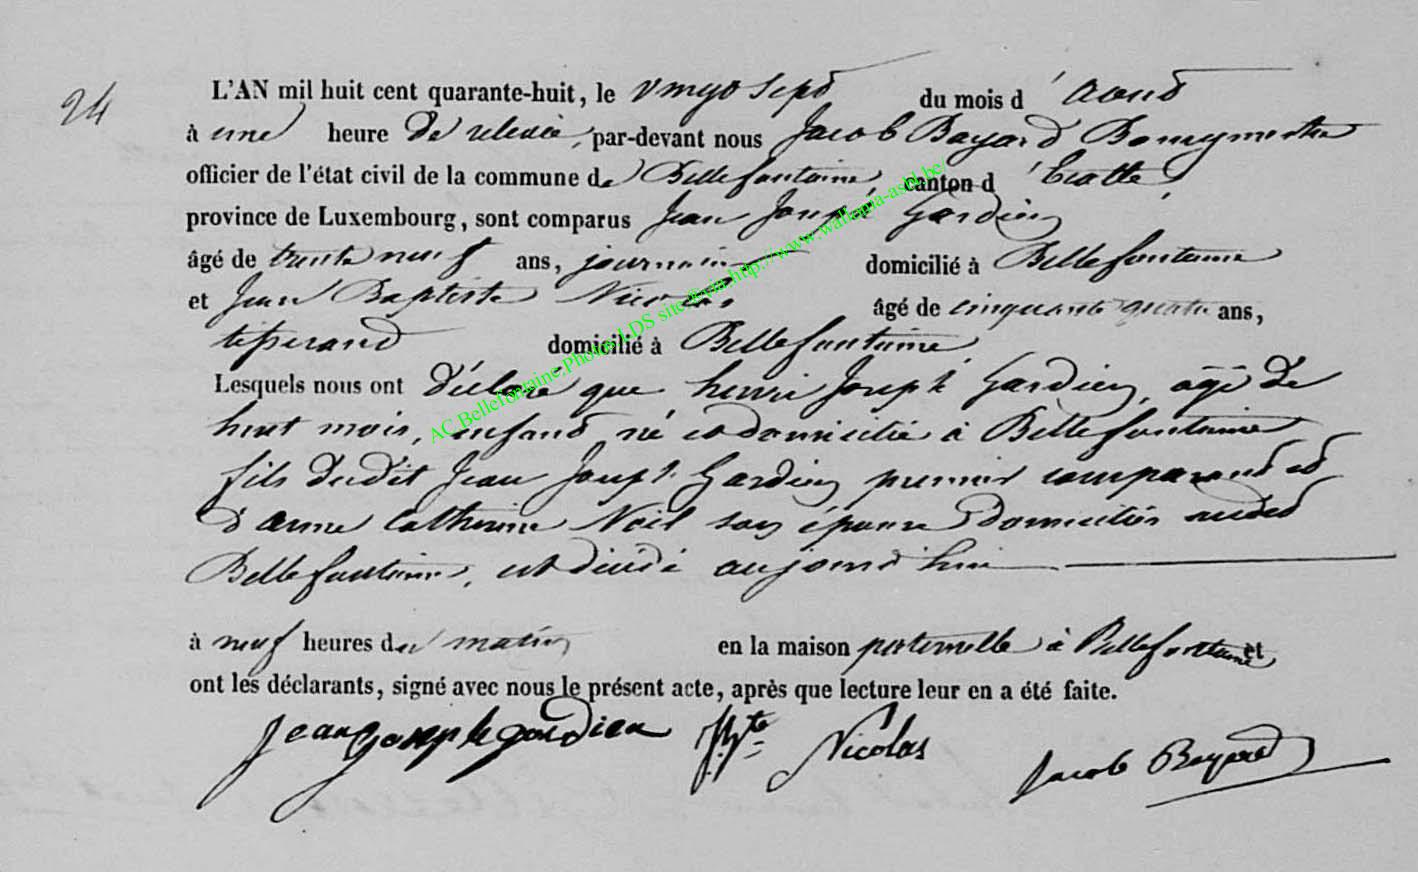 24
L'AN mil huit cent quarante-huit, le vingt sept du mois d'août
à une heure de relevée, par-devant nous Jacob Bayard Bourgmestre
officier de l'état civil de la commune de Bellefontaine, canton d'Etalle,
province de Luxembourg, sont comparus Jean Joseph Gardien
âgé de trente neuf ans, journalier domicilié à Bellefontaine
et Jean Baptiste Nicolas âgé de cinquante quatre ans,
tisserand domicilié à Bellefontaine.
Lesquels nous ont déclaré que henri Joseph Gardien, âgé de
huit mois, enfant né et domicilié à Bellefontaine
fils dudit Jean Joseph Gardien premier comparant et
d'anne Catherine Noël son épouse domiciliés audit
Bellefontaine, est décédé aujourd'hui
à neuf heures du matin en la maison paternelle à Bellefontaine et
ont les déclarants, signé avec nous le présent acte, après que lecture leur en a été faite.
Jean Joseph gardien J. Bte Nicolas Jacob Bayard
AC.Bellefontaine.Photos LDS site@via http://www.wallonia-asbl.be/